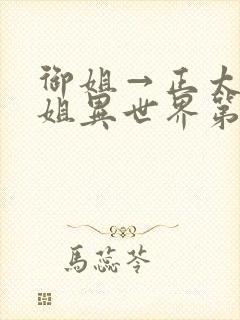 御姐→正太
姐異世界第
馬蕊苓